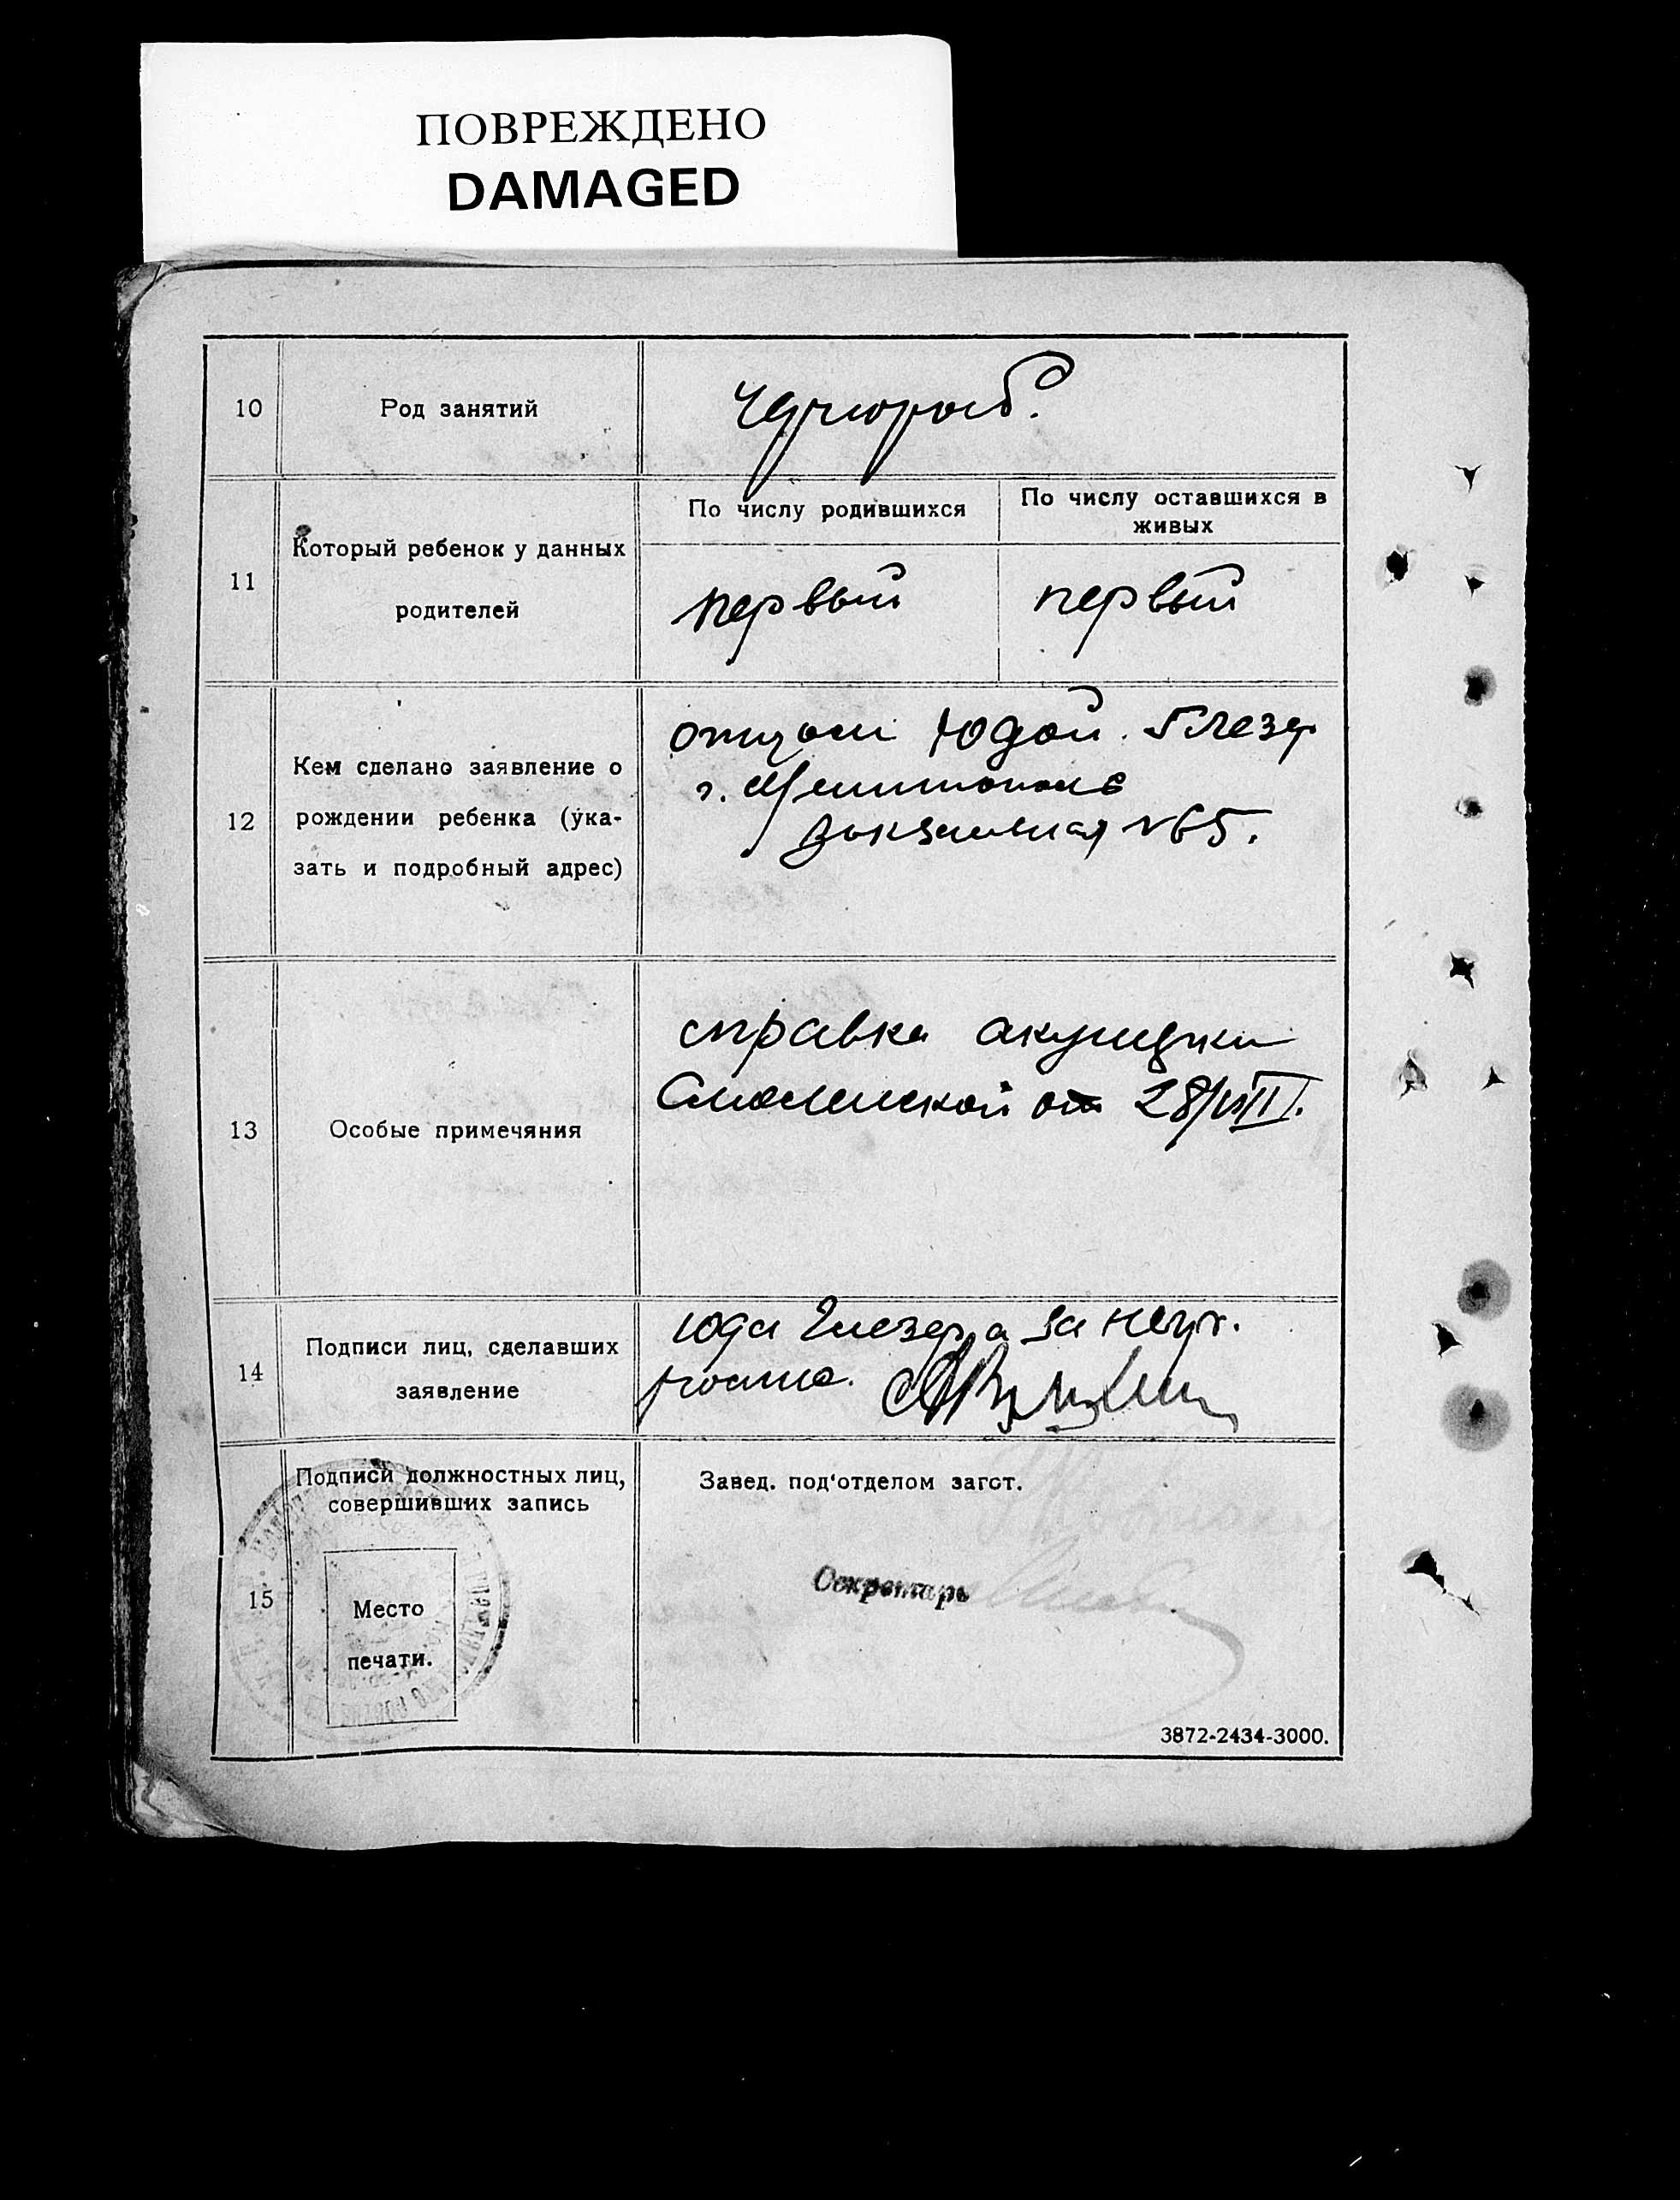 ПОВРЕЖДЕНО
DAMAGED
10 Род занятий Чернораб.
11 Который ребенок у данных родителей
По числу родившихся
По числу оставшихся в
живых
первый первый
12 Кем сделано заявление о
рождении ребенка (ука-
зать и подробный адрес)
отцом Юдой Глезер
г. Мелитополь
Вокзальная №65.
13 Особые примечяния
справка акушерки
Смоленской от 28/VIII.
14 Подписи лиц, сделавших
заявление
Юда Глезер, а за негр.
15 Подписи должностных лиц,
совершивших запись
Место
печати.
Завед. под'отделом загот.
Секретарь
3872-2434-3000.